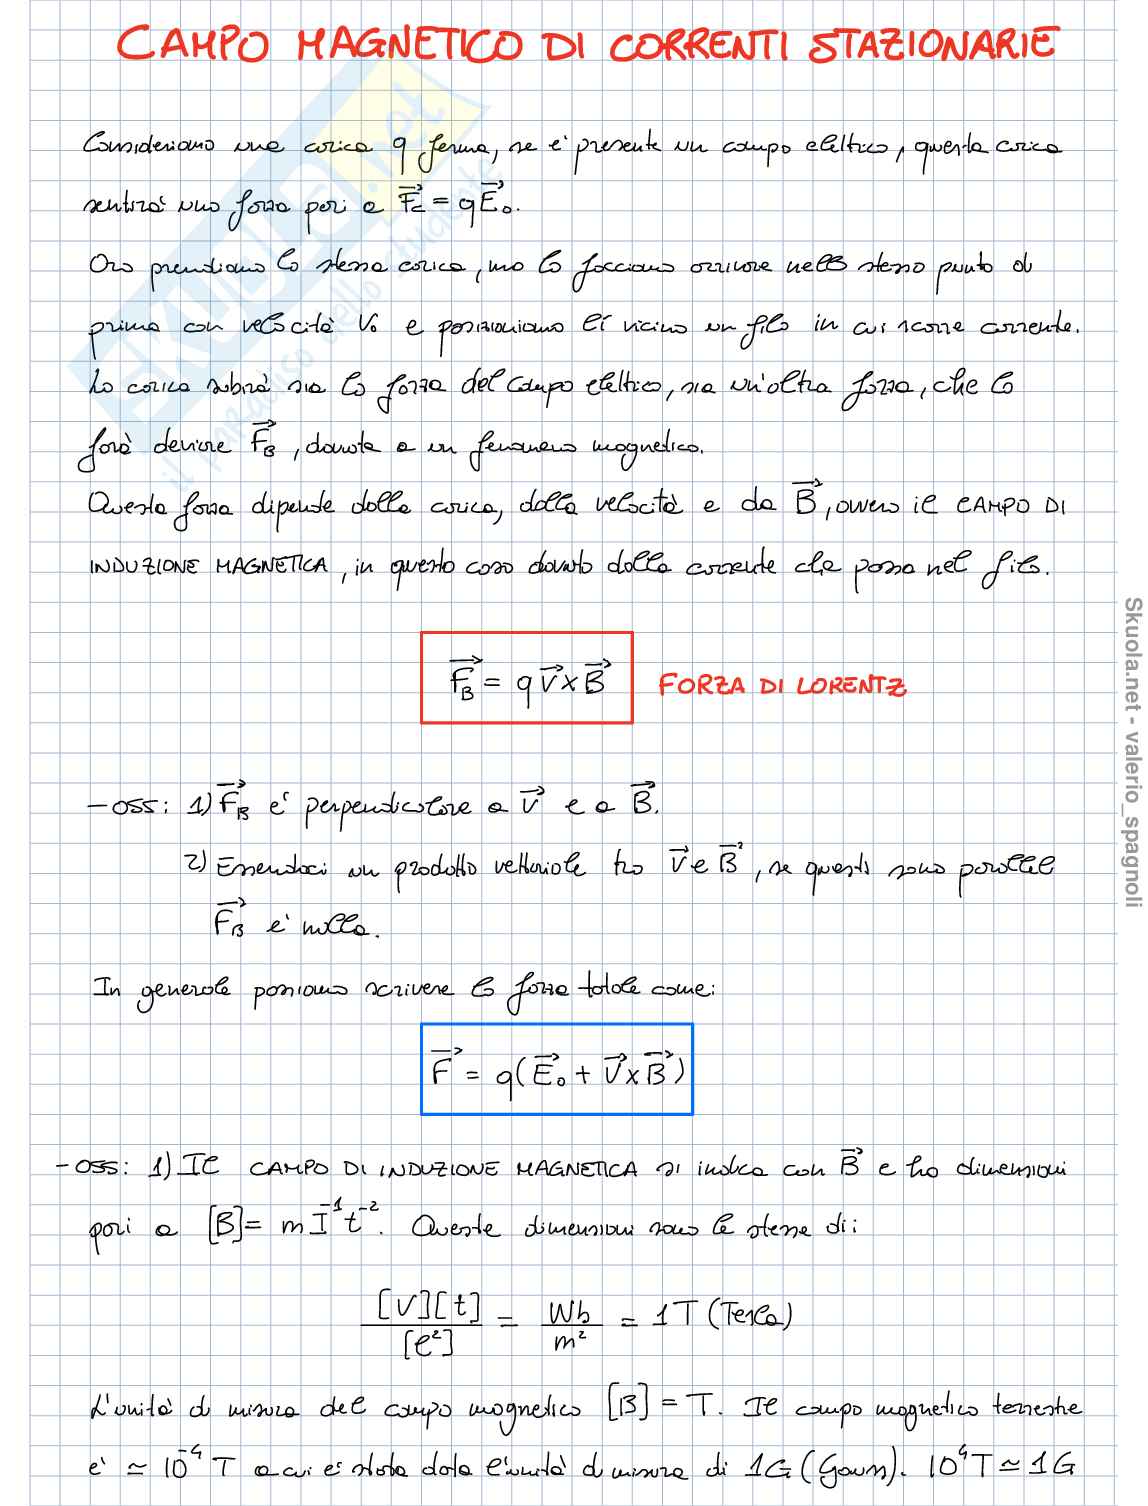 CAMPO MAGNETICO DI CORRENTI STAZIONARIE
Consideriamo una carica q ferma, se è presente un campo elettrico, questa carica
sentirà una forza pari a F⃗c = qE⃗₀.
Ora prendiamo la stessa carica, ma la facciamo arrivare nello stesso punto di
prima con velocità V₀ e posizioniamo lì vicino un filo in cui scorre corrente.
La carica subirà sia la forza del campo elettrico, sia un'altra forza, che la
farà deviare F⃗B, dovuta a un fenomeno magnetico.
Questa forza dipende dalla carica, dalla velocità e da B⃗, ovvero il CAMPO DI
INDUZIONE MAGNETICA, in questo caso dovuto dalla corrente che passa nel filo.
F⃗B = q v⃗ x B⃗ FORZA DI LORENTZ
- OSS: 1) F⃗B è perpendicolare a v⃗ e a B⃗.
2) Essendoci un prodotto vettoriale tra v⃗ e B⃗, se questi sono paralleli
F⃗B è nulla.
In generale possiamo scrivere la forza totale come:
F⃗ = q(E⃗₀ + V⃗ x B⃗)
- OSS: 1) Il CAMPO DI INDUZIONE MAGNETICA si indica con B⃗ e ha dimensioni
pari a [B] = m I⁻¹ t⁻². Queste dimensioni sono le stesse di:
[V][t] / [l²] = Wb / m² = 1T (Tesla)
L'unità di misura del campo magnetico [B] = T. Il campo magnetico terrestre
è ≃ 10⁻⁴ T a cui è stata data l'unità di misura di 1G (Gauss). 10⁴T ≃ 1G
Skuola.net - valerio_spagnoli
SKUOLA.net
il paradiso dello studente